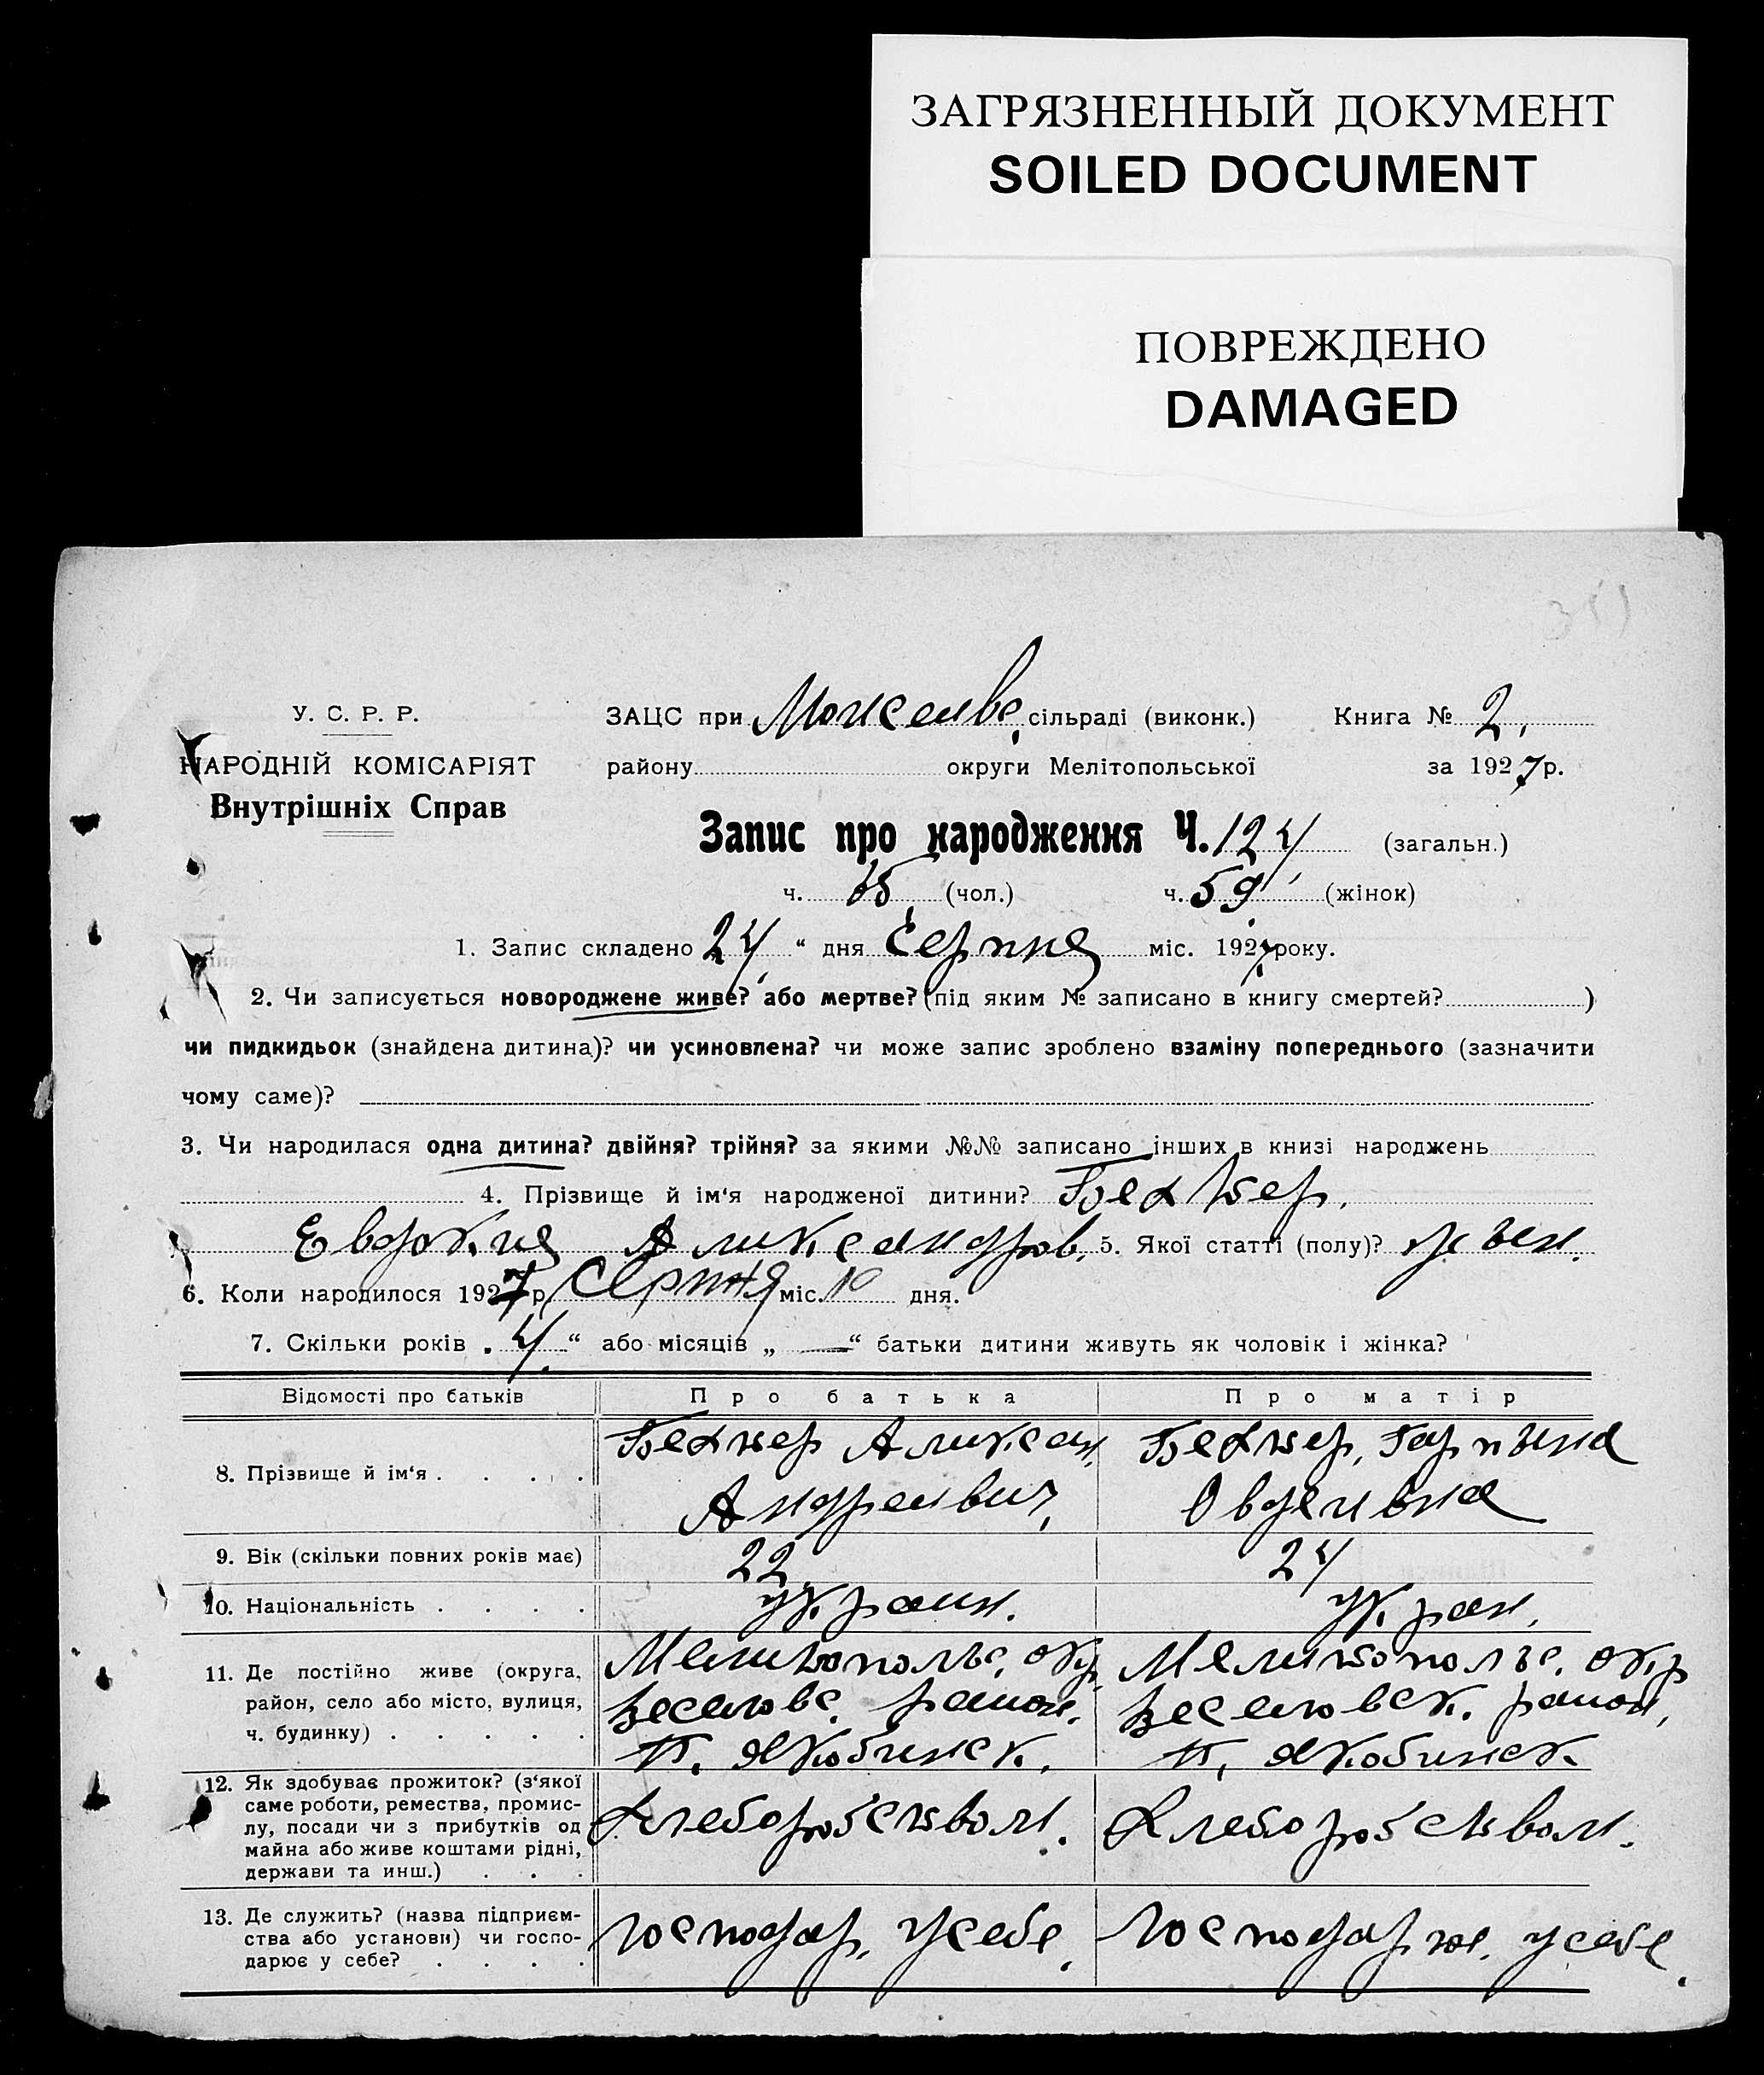 ЗАГРЯЗНЕННЫЙ ДОКУМЕНТ
SOILED DOCUMENT
ПОВРЕЖДЕНО
DAMAGED
У. С. Р. Р.
НАРОДНІЙ КОМІСАРІЯТ
Внутрішніх Справ
ЗАЦС при сільраді (виконк.) Книга № 2.
району округи Мелітопольської за 1927 р.
Запис про народження Ч. 124 (загальн.)
ч. 65 (чол.) ч. 59 (жінок)
1. Запис складено 24 " дня Серпня міс. 1927 року.
2. Чи записується новороджене живе? або мертве? (під яким № записано в книгу смертей? )
чи пидкидьок (знайдена дитина)? чи усиновлена? чи може запис зроблено взаміну попереднього (зазначити
чому саме)?
3. Чи народилася одна дитина? двійня? трійня? за якими №№ записано інших в книзі народжень
4. Прізвище й ім'я народженої дитини? Бехтер.
Евдокия Александров. 5. Якої статті (полу)? жен.
6. Коли народилося 1927 р. Серпня міс. 10 дня.
7. Скільки років „ 4 " або місяців „ — " батьки дитини живуть як чоловік і жінка?
Відомості про батьків Про батька Про матір
8. Прізвище й ім'я . . . . Бехтер Алексан. Бехтер, Гарпына
Андреевич, Овдеивна
9. Вік (скільки повних років має) 22 24
10. Національність . . . . украин. укран.
11. Де постійно живе (округа, Мелитопольс. окр. Мелитопольс. окр
район, село або місто, вулиця, Веселовс. район. Веселовск. район,
ч. будинку) . . . . . П. Якобинск. П. Якобинск
12. Як здобуває прожиток? (з'якої
саме роботи, ремества, промис-
лу, посади чи з прибутків од Хлеборобством. Хлеборобством.
майна або живе коштами рідні,
держави та инш.) . . .
13. Де служить? (назва підприєм-
ства або установи) чи госпо- господар. у себе. господарж. у себе.
дарює у себе? . . . .